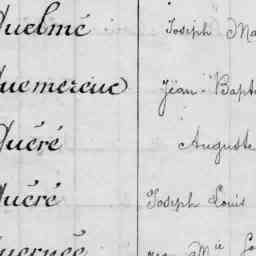 Quelmé Joseph Ma
Quemereuc Jean-Bapt
Quéré Auguste
Quéré Joseph Louis